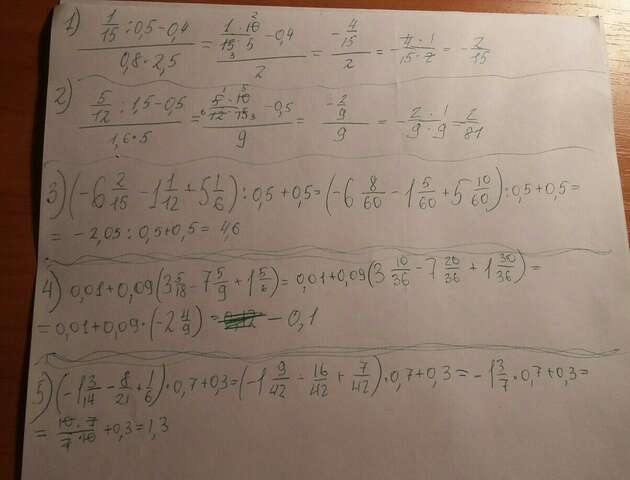 1) (1/15 : 0,5 - 0,4)/(0,8 * 2,5) = ((1 * 10)/(15 * 5) - 0,4)/2 = (-4/15)/2 = -(4 * 1)/(15 * 2) = -2/15
2) (5/12 : 1,5 - 0,5)/(1,6 * 5) = ((5 * 10)/(12 * 15) - 0,5)/9 = (-2/9)/9 = -(2 * 1)/(9 * 9) = 2/81
3) (-6 2/15 - 1 1/12 + 5 1/6) : 0,5 + 0,5 = (-6 8/60 - 1 5/60 + 5 10/60) : 0,5 + 0,5 =
= -2,05 : 0,5 + 0,5 = 4,6
4) 0,01 + 0,09 (3 5/18 - 7 5/9 + 1 5/6) = 0,01 + 0,09 (3 10/36 - 7 20/36 + 1 30/36) =
= 0,01 + 0,09 * (-2 4/9) = -0,1
5) (-1 3/14 - 8/21 + 1/6) * 0,7 + 0,3 = (-1 9/42 - 16/42 + 7/42) * 0,7 + 0,3 = -1 3/7 * 0,7 + 0,3 =
= (10 * 7)/(7 * 10) + 0,3 = 1,3